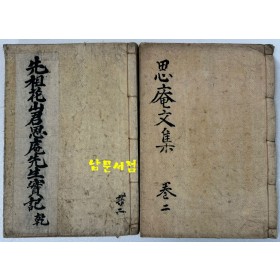 先祖花山君思庵先生實記 乾
共二
납문서점
思庵文集
卷二